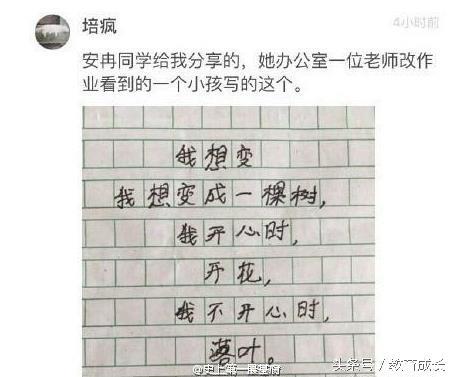 培疯
4小时前
安冉同学给我分享的，她办公室一位老师改作
业看到的一个小孩写的这个。
我想变
我想变成一棵树，
我开心时，
开花，
我不开心时，
落叶。
@史上第一最猩腐
头条号／教育成长